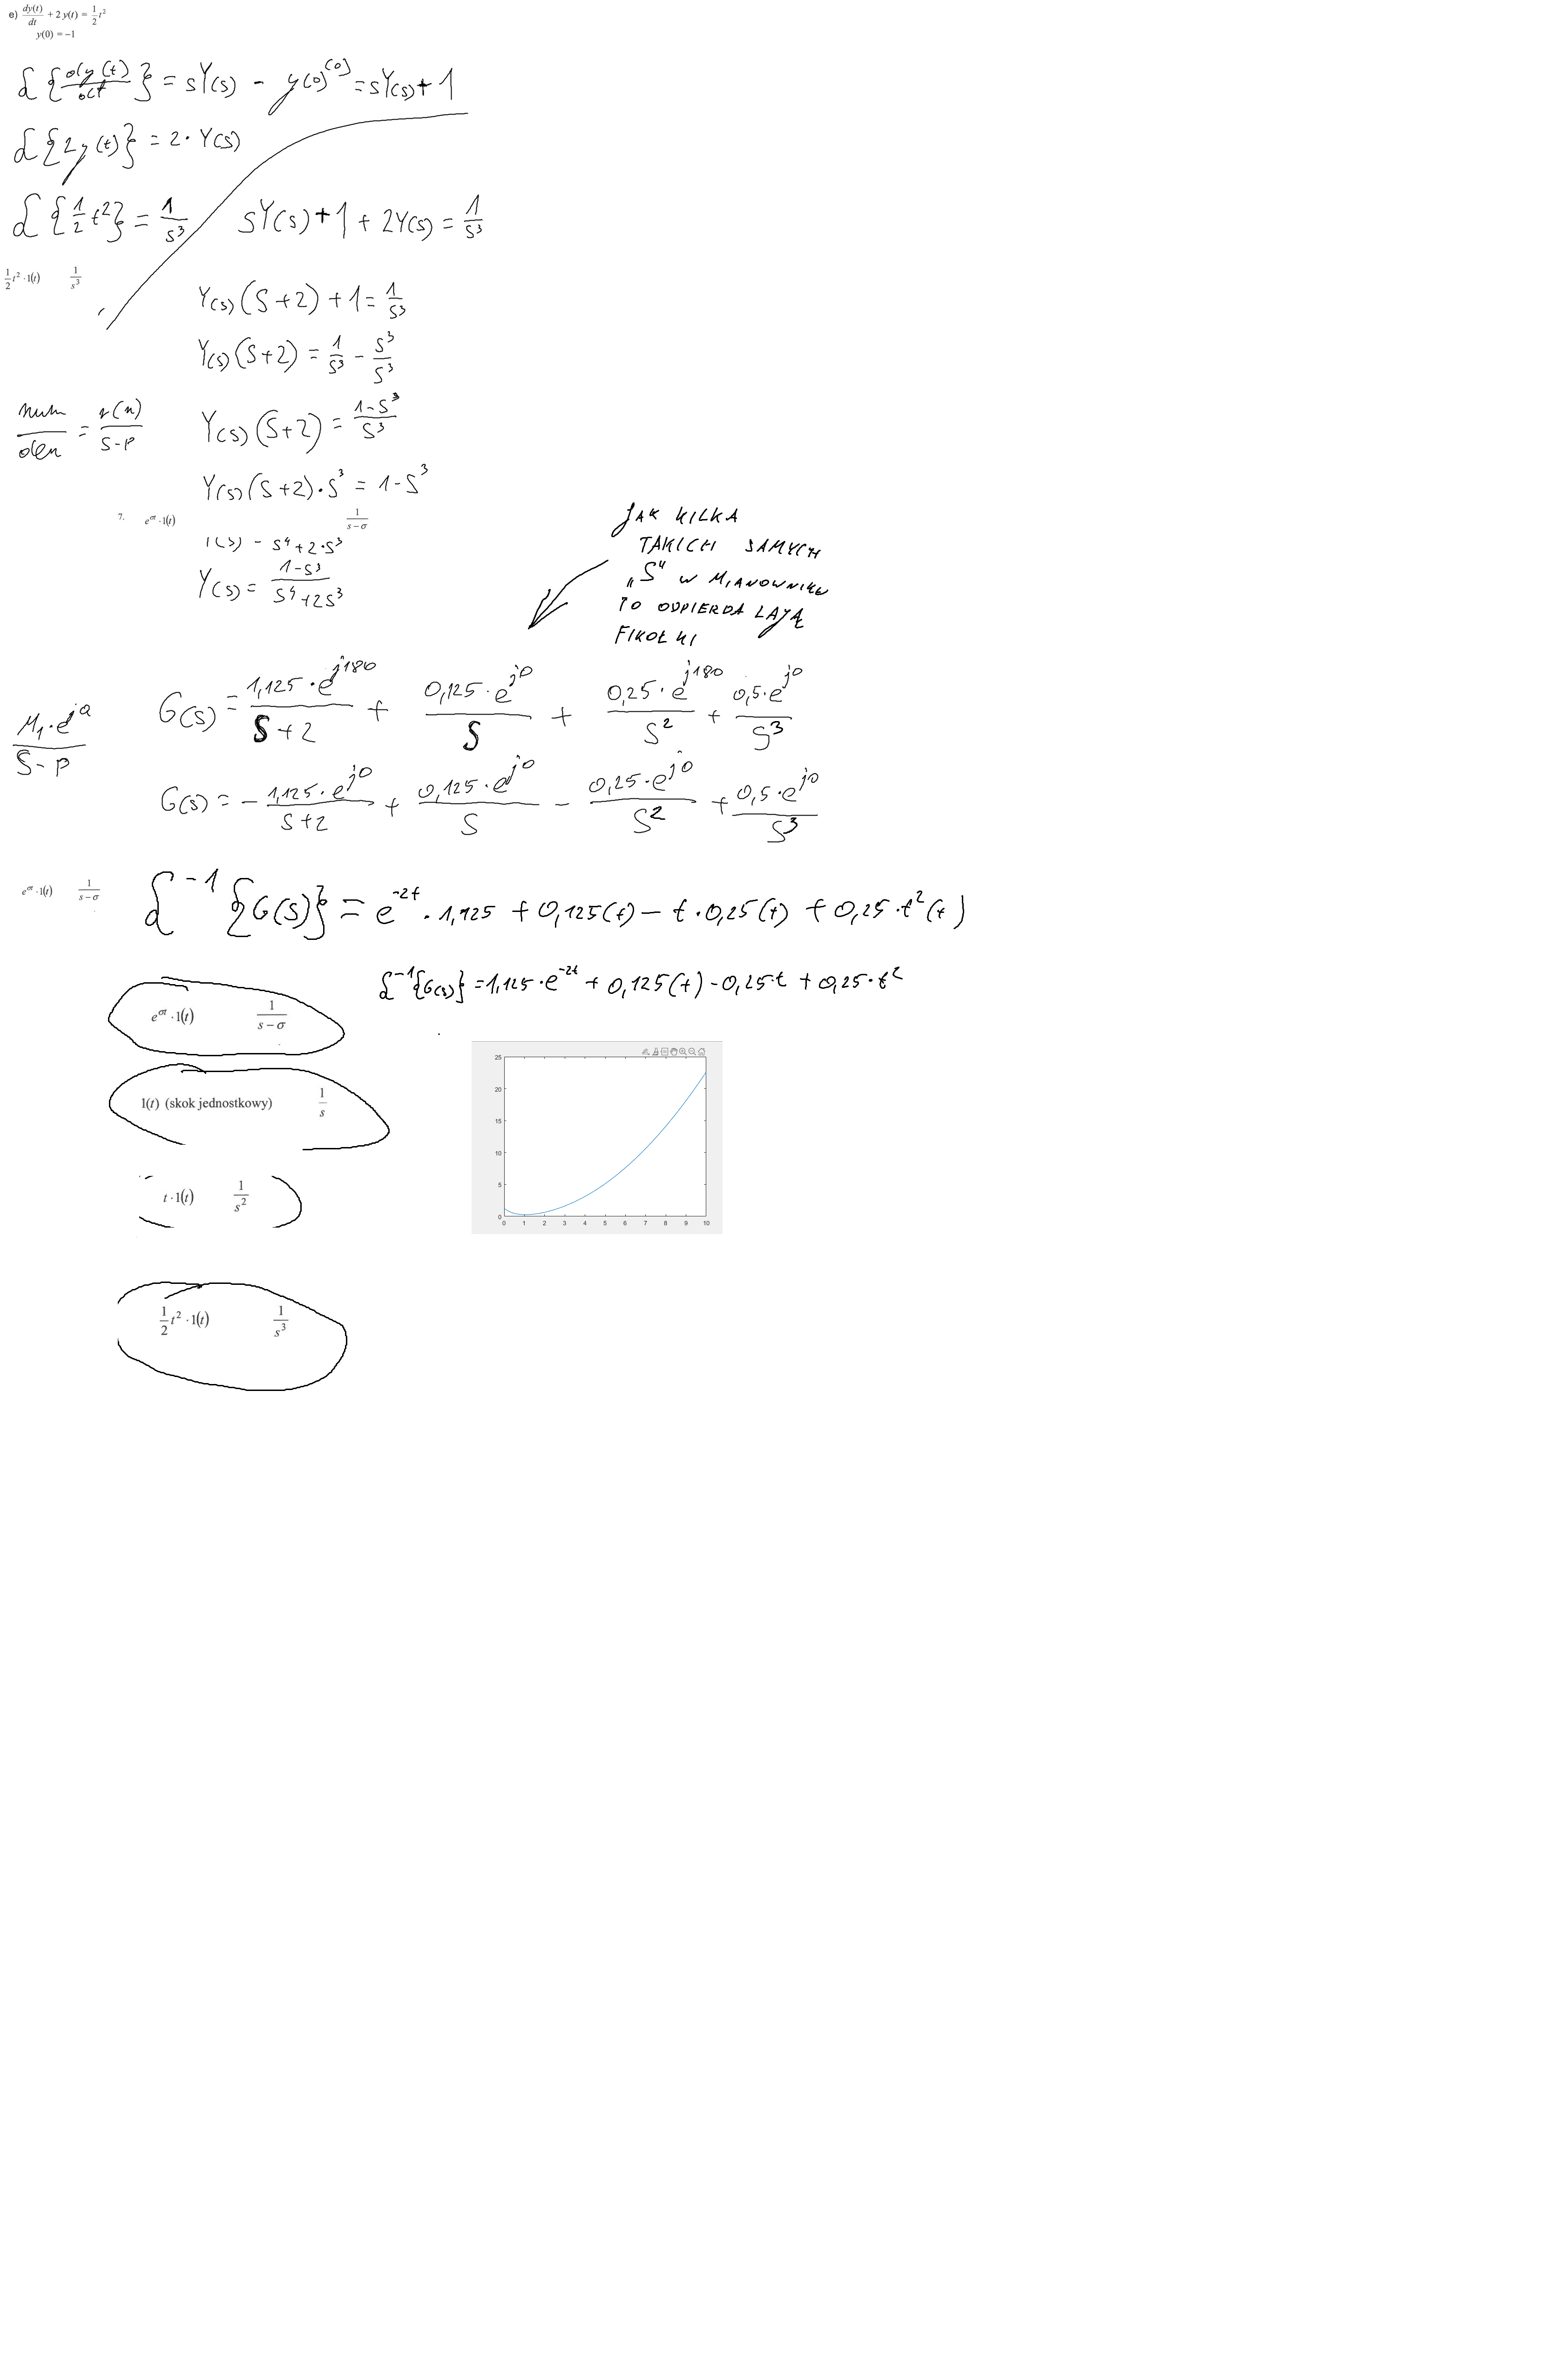 e) dy(t)/dt + 2 y(t) = 1/2 t²
y(0) = −1
ℒ{dy(t)/dt} = sY(s) − y(0)^(0) = sY(s) + 1
ℒ{2y(t)} = 2·Y(s)
ℒ{1/2 t²} = 1/s³
sY(s) + 1 + 2Y(s) = 1/s³
1/2 t² · 1(t)    1/s³
Y(s)(s+2) + 1 = 1/s³
Y(s)(s+2) = 1/s³ − s³/s³
num/den = r(n)/s−p
Y(s)(s+2) = 1−s³/s³
Y(s)(s+2)·s³ = 1−s³
7. e^σt · 1(t)    1/s−σ
s⁴+2·s³
Y(s) = 1−s³/s⁴+2s³
JAK KILKA
TAKICH SAMYCH
„S" W MIANOWNIKU
TO ODPIERDALAJĄ
FIKOŁKI
M₁·e^ja/s−p
G(s) = 1,125·e^j180/s+2 + 0,125·e^j0/s + 0,25·e^j180/s² + 0,5·e^j0/s³
G(s) = − 1,125·e^j0/s+2 + 0,125·e^j0/s − 0,25·e^j0/s² + 0,5·e^j0/s³
e^σt · 1(t)    1/s−σ
ℒ⁻¹{G(s)} = e^−2t · 1,125 + 0,125(t) − t·0,25(t) + 0,25·t²(t)
ℒ⁻¹{G(s)} = 1,125·e^−2t + 0,125(t) − 0,25·t + 0,25·t²
e^σt · 1(t)    1/s−σ
1(t) (skok jednostkowy)    1/s
t · 1(t)    1/s²
1/2 t² · 1(t)    1/s³
25
20
15
10
5
0
0 1 2 3 4 5 6 7 8 9 10